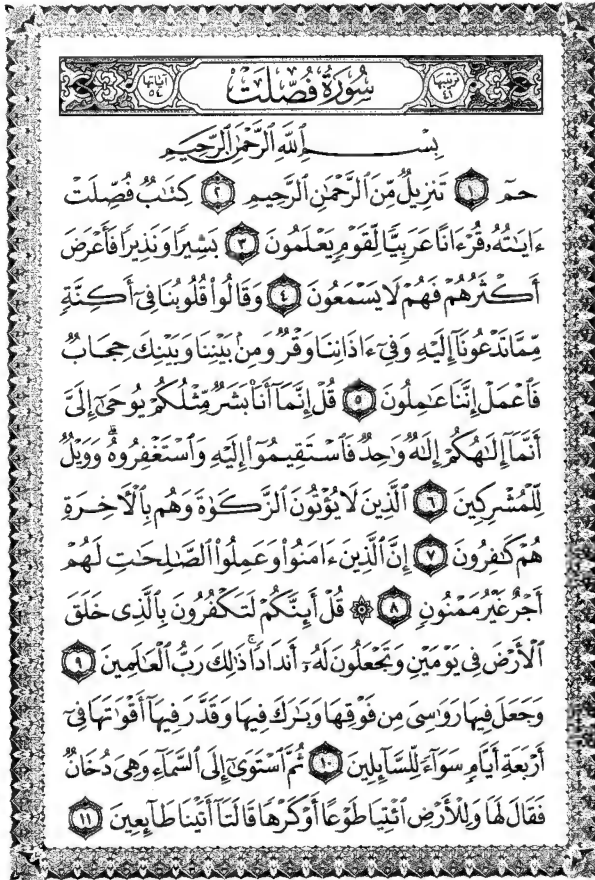 ترتيبها ٤١ سُورَةُ فُصِّلَتْ آياتها ٥٤
بِسْمِ ٱللَّهِ ٱلرَّحْمَٰنِ ٱلرَّحِيمِ
حمٓ ١ تَنزِيلٌ مِّنَ ٱلرَّحْمَٰنِ ٱلرَّحِيمِ ٢ كِتَٰبٌ فُصِّلَتْ
ءَايَٰتُهُۥ قُرْءَانًا عَرَبِيًّا لِّقَوْمٍ يَعْلَمُونَ ٣ بَشِيرًا وَنَذِيرًا فَأَعْرَضَ
أَكْثَرُهُمْ فَهُمْ لَا يَسْمَعُونَ ٤ وَقَالُوا۟ قُلُوبُنَا فِىٓ أَكِنَّةٍ
مِّمَّا تَدْعُونَآ إِلَيْهِ وَفِىٓ ءَاذَانِنَا وَقْرٌ وَمِنۢ بَيْنِنَا وَبَيْنِكَ حِجَابٌ
فَٱعْمَلْ إِنَّنَا عَٰمِلُونَ ٥ قُلْ إِنَّمَآ أَنَا۠ بَشَرٌ مِّثْلُكُمْ يُوحَىٰٓ إِلَىَّ
أَنَّمَآ إِلَٰهُكُمْ إِلَٰهٌ وَٰحِدٌ فَٱسْتَقِيمُوٓا۟ إِلَيْهِ وَٱسْتَغْفِرُوهُ ۗ وَوَيْلٌ
لِّلْمُشْرِكِينَ ٦ ٱلَّذِينَ لَا يُؤْتُونَ ٱلزَّكَوٰةَ وَهُم بِٱلْءَاخِرَةِ
هُمْ كَٰفِرُونَ ٧ إِنَّ ٱلَّذِينَ ءَامَنُوا۟ وَعَمِلُوا۟ ٱلصَّٰلِحَٰتِ لَهُمْ
أَجْرٌ غَيْرُ مَمْنُونٍ ٨ ۞ قُلْ أَئِنَّكُمْ لَتَكْفُرُونَ بِٱلَّذِى خَلَقَ
ٱلْأَرْضَ فِى يَوْمَيْنِ وَتَجْعَلُونَ لَهُۥٓ أَندَادًا ۚ ذَٰلِكَ رَبُّ ٱلْعَٰلَمِينَ ٩
وَجَعَلَ فِيهَا رَوَٰسِىَ مِن فَوْقِهَا وَبَٰرَكَ فِيهَا وَقَدَّرَ فِيهَآ أَقْوَٰتَهَا فِىٓ
أَرْبَعَةِ أَيَّامٍ سَوَآءً لِّلسَّآئِلِينَ ١٠ ثُمَّ ٱسْتَوَىٰٓ إِلَى ٱلسَّمَآءِ وَهِىَ دُخَانٌ
فَقَالَ لَهَا وَلِلْأَرْضِ ٱئْتِيَا طَوْعًا أَوْ كَرْهًا قَالَتَآ أَتَيْنَا طَآئِعِينَ ١١